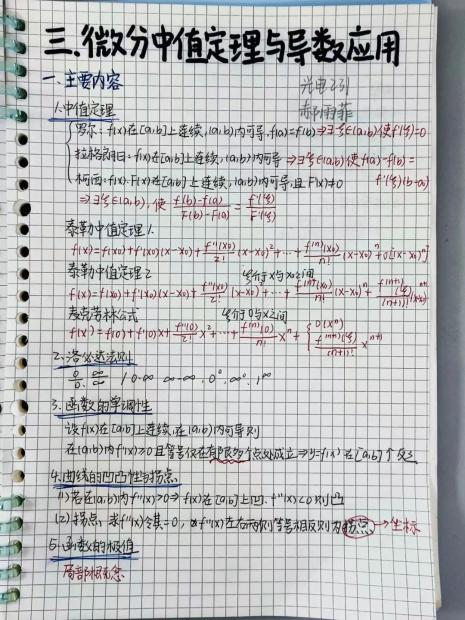 三.微分中值定理与导数应用
一、主要内容
光电231
郝雨菲
1.中值定理
罗尔: f(x)在[a,b]上连续,(a,b)内可导, f(a)=f(b)⇒∃ξ∈(a,b)使f'(ξ)=0
拉格朗日: f(x)在[a,b]上连续,(a,b)内可导 ⇒∃ξ∈(a,b)使f(a)-f(b)=
f'(ξ)(b-a)
柯西: f(x).F(x)在[a,b]上连续,(a,b)内可导,且F'(x)≠0
⇒∃ξ∈(a,b),使 f(b)-f(a)/F(b)-F(a) = f'(ξ)/F'(ξ)
泰勒中值定理1.
f(x)=f(x₀)+f'(x₀)(x-x₀)+f''(x₀)/2!(x-x₀)²+…+f⁽ⁿ⁾(x₀)/n!(x-x₀)ⁿ+o[(x-x₀)ⁿ]
泰勒中值定理2 ξ介于x与x₀之间
f(x)=f(x₀)+f'(x₀)(x-x₀)+f''(x₀)/2!(x-x₀)²+…+f⁽ⁿ⁾(x₀)/n!(x-x₀)ⁿ+f⁽ⁿ⁺¹⁾(ξ)/(n+1)!(x-x₀)ⁿ⁺¹
麦克劳林公式 ξ介于0与x之间
f(x)=f(0)+f'(0)x+f''(0)/2!x²+…+f⁽ⁿ⁾(0)/n!xⁿ+{o(xⁿ)
f⁽ⁿ⁺¹⁾(ξ)/(n+1)!xⁿ⁺¹
2.洛必达法则
0/0. ∞/∞ / 0·∞ ∞-∞ .0⁰.∞⁰.1^∞
3.函数的单调性
设f(x)在[a,b]上连续,在(a,b)内可导则
在(a,b)内f'(x)≥0且等号仅在有限多个点处成立⇒y=f(x)在[a,b]个
4.曲线的凹凸性与拐点
(1)若在(a,b)内f''(x)>0⇒f(x)在[a,b]上凹. f''(x)<0则凸
(2)拐点,求f''(x)令其=0, 若f''(x)左右两侧符号相反则为拐点→坐标
5.函数的极值
局部概念